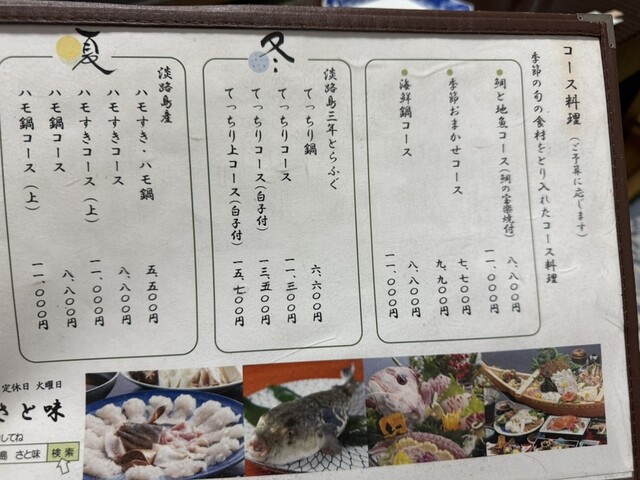 コース料理（ご予算に応じます）
季節の旬の食材をとり入れたコース料理
鯛と地魚コース（鯛の宝楽焼付） 八、八〇〇円
一一、〇〇〇円
季節おまかせコース 七、七〇〇円
九、九〇〇円
海鮮鍋コース 八、八〇〇円
一一、〇〇〇円
冬
淡路島三年とらふぐ
てっちり鍋 六、六〇〇円
てっちりコース 一一、三〇〇円
てっちりコース（白子付） 一三、五〇〇円
てっちり上コース（白子付） 一五、七〇〇円
夏
淡路島産
ハモすき・ハモ鍋 五、五〇〇円
ハモすきコース 八、八〇〇円
ハモすきコース（上） 一一、〇〇〇円
ハモ鍋コース 八、八〇〇円
ハモ鍋コース（上） 一一、〇〇〇円
定休日 火曜日
さと味
してね
島 さと味 検索